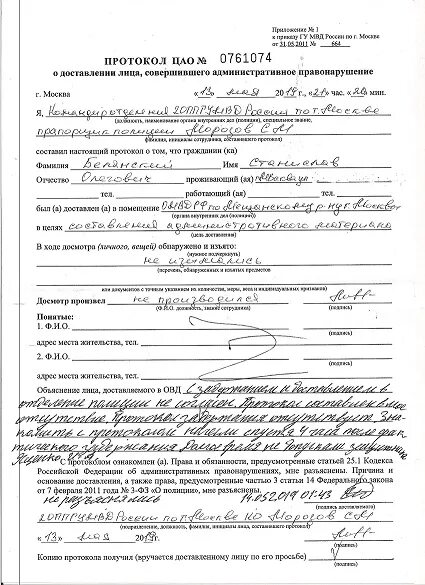 Приложение № 1
к приказу ГУ МВД России по г. Москве
от 31.05.2011 № 664
ПРОТОКОЛ ЦАО № 0761074
о доставлении лица, совершившего административное правонарушение
г. Москва « 13 » мая 2019 г. «21» час. «20» мин.
Я, Командир отделения 2ОППРУМВД России по г. Москве
(должность, наименование органа внутренних дел (полиции), специальное звание,
прапорщик полиции Морозов С М
фамилия, инициалы сотрудника, составившего протокол)
составил настоящий протокол о том, что гражданин (ка)
Фамилия Белянский Имя Станислав
Отчество Олегович проживающий (ая)
тел. работающий (ая)
тел.
был (а) доставлен (а) в помещение ОМВД РФ по Мещанскому р-ну г. Москвы
(органа внутренних дел (полиции))
в целях составления административного материала
(цель доставления)
В ходе досмотра (личного, вещей) обнаружено и изъято:
(нужное подчеркнуть)
не изымалось
(перечень, обнаруженных и изъятых предметов
или документов с точным указанием их количества, меры, веса и индивидуальных признаков)
Досмотр произвел не производился
(Ф.И.О. должность, звание сотрудника) (подпись)
Понятые:
1. Ф.И.О.
адрес места жительства, телефон: (подпись)
2. Ф.И.О.
адрес места жительства, телефон: (подпись)
Объяснение лица, доставляемого в ОВД С задержанием и доставлением в
отделение полиции не согласен. Протокол составлен в мое
отсутствие. Протокол задержания отсутствует. Озна-
комить с протоколом начали спустя 4 часа после фак-
тического задержания. Долгое время не допускали защитника
С протоколом ознакомлен (а). Права и обязанности, предусмотренные статьей 25.1 Кодекса
Российской Федерации об административных правонарушениях, мне разъяснены. Причина и
основание доставления, а также права, предусмотренные частью 3 статьи 14 Федерального закона
от 7 февраля 2011 года № 3-ФЗ «О полиции», мне разъяснены.
не разъяснялись 14.05.2019 01:43
(подпись доставленного)
2ОППРУМВД России по г. Москве КО Морозов С М
(подразделение, должность, фамилия, инициалы лица, составившего протокол)
« 13 » мая 2019 г.
(подпись)
Копию протокола получил (вручается доставленному лицу по его просьбе)
(подпись)